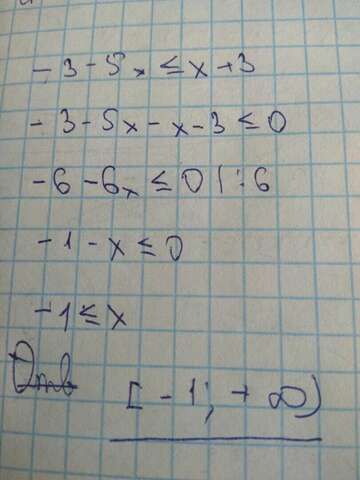 -3-5x ≤ x+3
-3-5x-x-3 ≤ 0
-6-6x ≤ 0 | :6
-1-x ≤ 0
-1 ≤ x
Отв [-1; +∞)